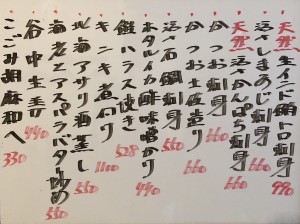 天然 生インド鮪トロ刺身 990
活〆しまあじ刺身 660
天然 活〆かんぱち刺身 660
かつお刺身 660
かつお土佐造り 660
活〆石鯛刺身 550
ホタルイカ酢味噌がけ 440
鮭ハラス焼き 528
キンキ煮付 1100
北海アサリ酒蒸し 550
海老とアスパラバター炒め 550
谷中生姜 440
こごみ胡麻和へ 330